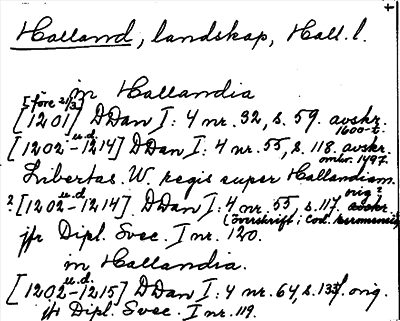 Halland, landskap, Hall. l.
in Hallandia
[före 21/3
[1201] DDan I: 4 nr. 32, s. 59. avskr.
1600-t.
u.d.
[1202-1214] DDan I: 4 nr. 55, s. 118. avskr.
omkr. 1497.
Libertas. W. regis super Hallandiam.
u.d. orig?
? [1202-1214]. DDan I: 4 nr. 55, s. 117. avskr.
(överskrift i Cod.
jfr Dipl. Svec. I nr. 120.
in Hallandia.
u.d.
[1202-1215] DDan I: 4 nr. 64, s. orig.
jfr Dipl. Svec. I nr. 119.